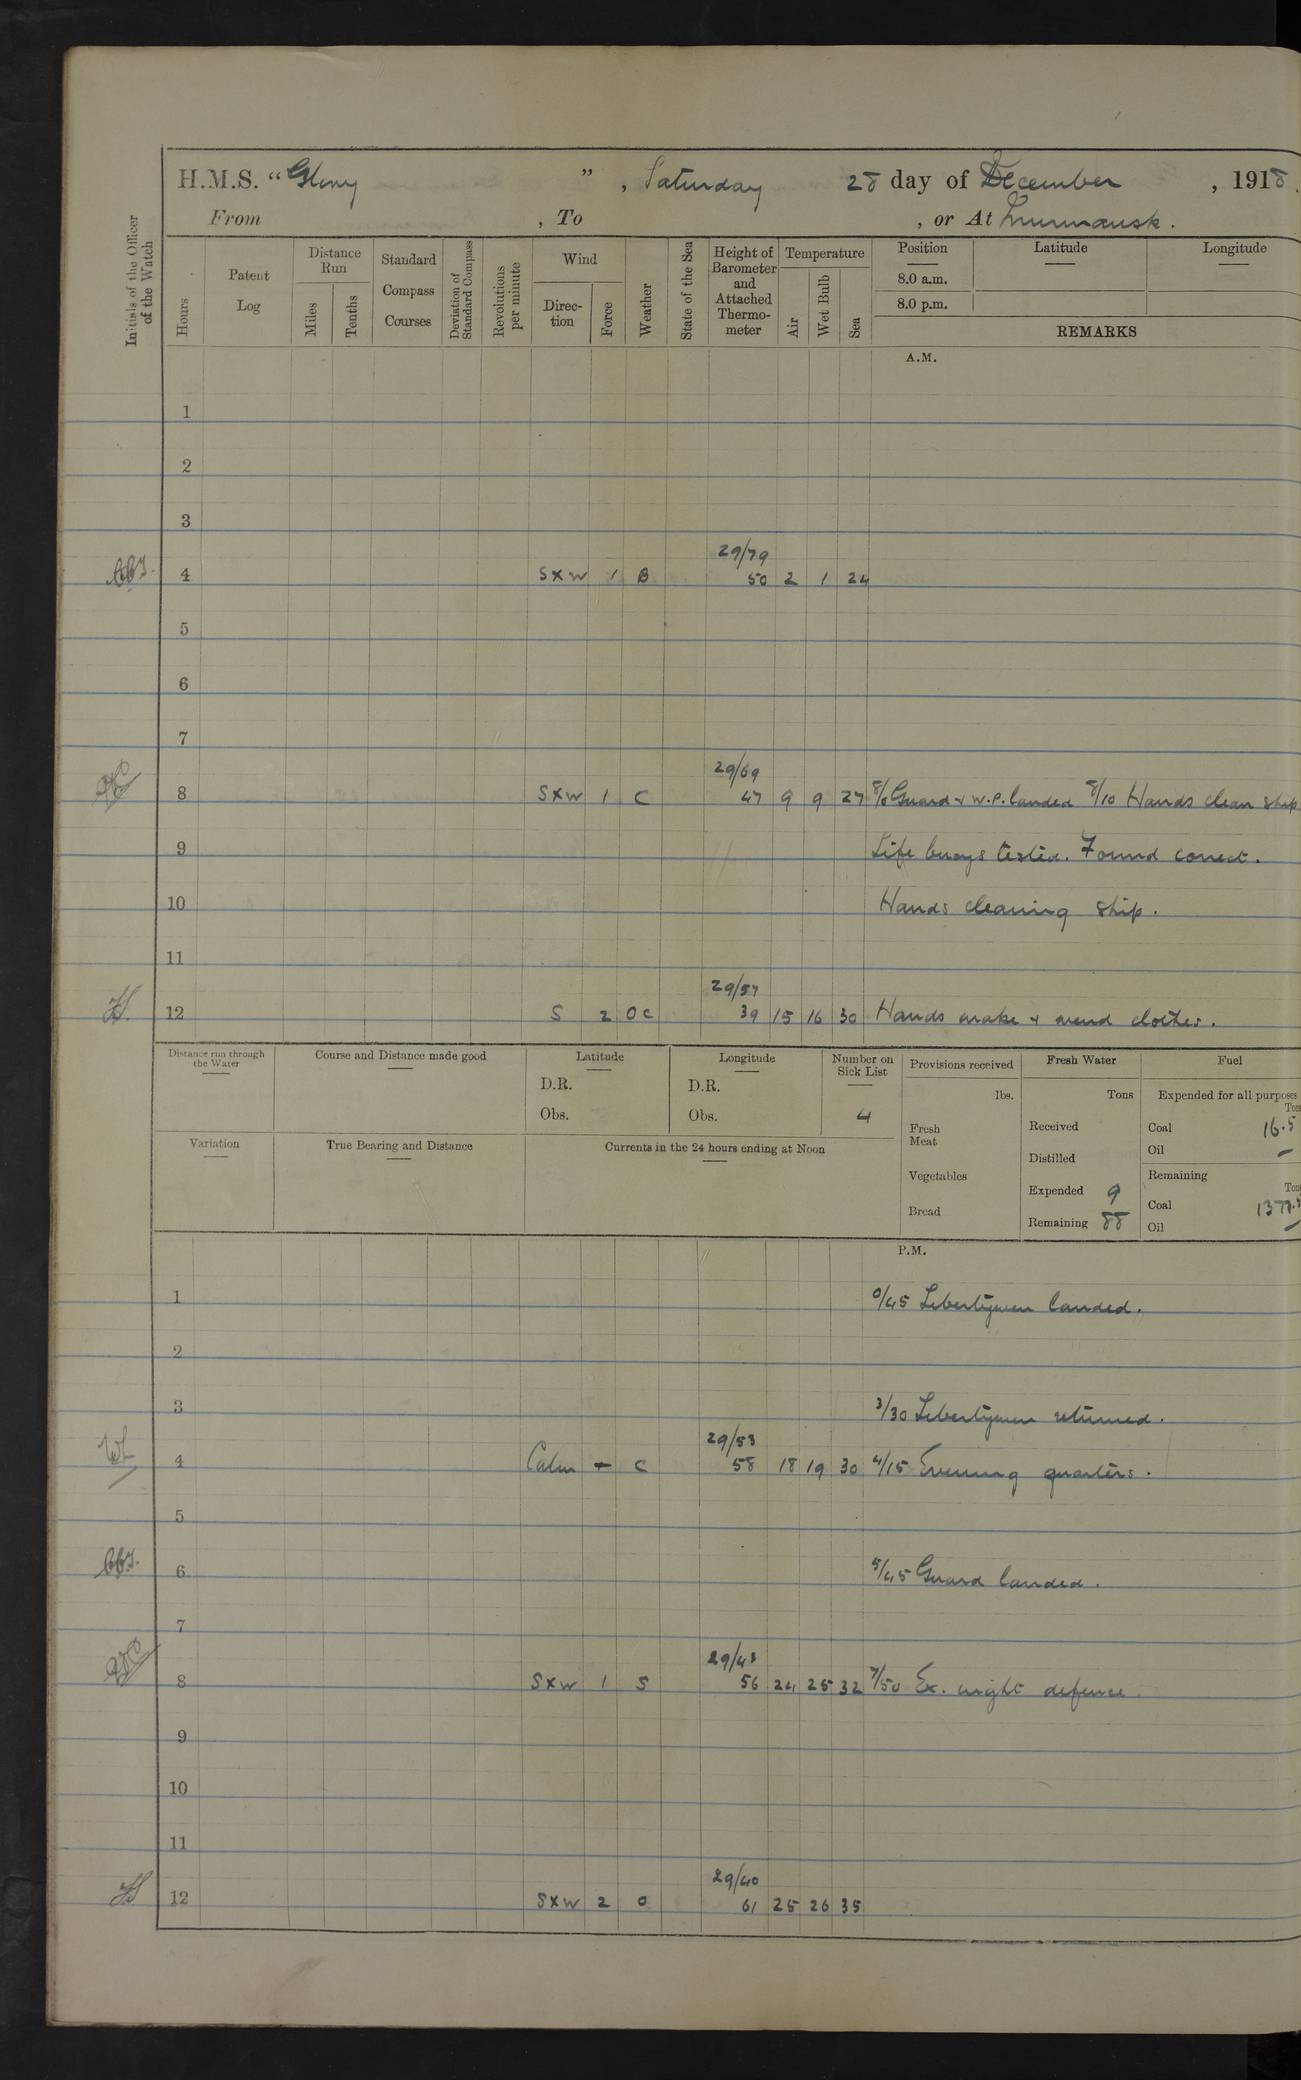 H.M.S. "Glory", Saturday 28 day of December, 1918.
From , To , or At Murmansk.
Initials of the Officer of the Watch
Hours
Patent Log
Distance Run
Miles
Tenths
Standard Compass Courses
Deviation of Standard Compass
Revolutions per minute
Wind
Direc-tion
Force
Weather
State of the Sea
Height of Barometer and Attached Thermo-meter
Temperature
Air
Wet Bulb
Sea
Position
Latitude
Longitude
8.0 a.m.
8.0 p.m.
REMARKS
A.M.
1
2
3
29/79
4 SxW 1 B 50 2 1 24
5
6
7
29/69
8 SxW 1 C 47 9 9 27 8/0 Guard & W.P. landed 8/10 Hands clean ship
9 Life buoys tested. Found correct.
10 Hands cleaning ship.
11
29/57
12 S 2 OC 39 15 16 30 Hands make & mend clothes.
Distance run through the Water
Course and Distance made good
Latitude
D.R.
Obs.
Longitude
D.R.
Obs.
Number on Sick List
4
Provisions received
lbs.
Fresh Meat
Vegetables
Bread
Fresh Water
Tons
Received
Distilled
Expended 9
Remaining 88
Fuel
Expended for all purposes
Tons
Coal 16.5
Oil –
Remaining
Tons
Coal
Oil –
Variation
True Bearing and Distance
Currents in the 24 hours ending at Noon
P.M.
1 0/45 Libertymen landed.
2
3 3/30 Libertymen returned.
29/53
4 Calm – C 58 18 19 30 4/15 Evening quarters.
5
6 5/45 Guard landed.
7
29/43
8 SxW 1 S 56 24 25 32 7/50 Ex. night defence.
9
10
11
29/40
12 SxW 2 O 61 25 26 35